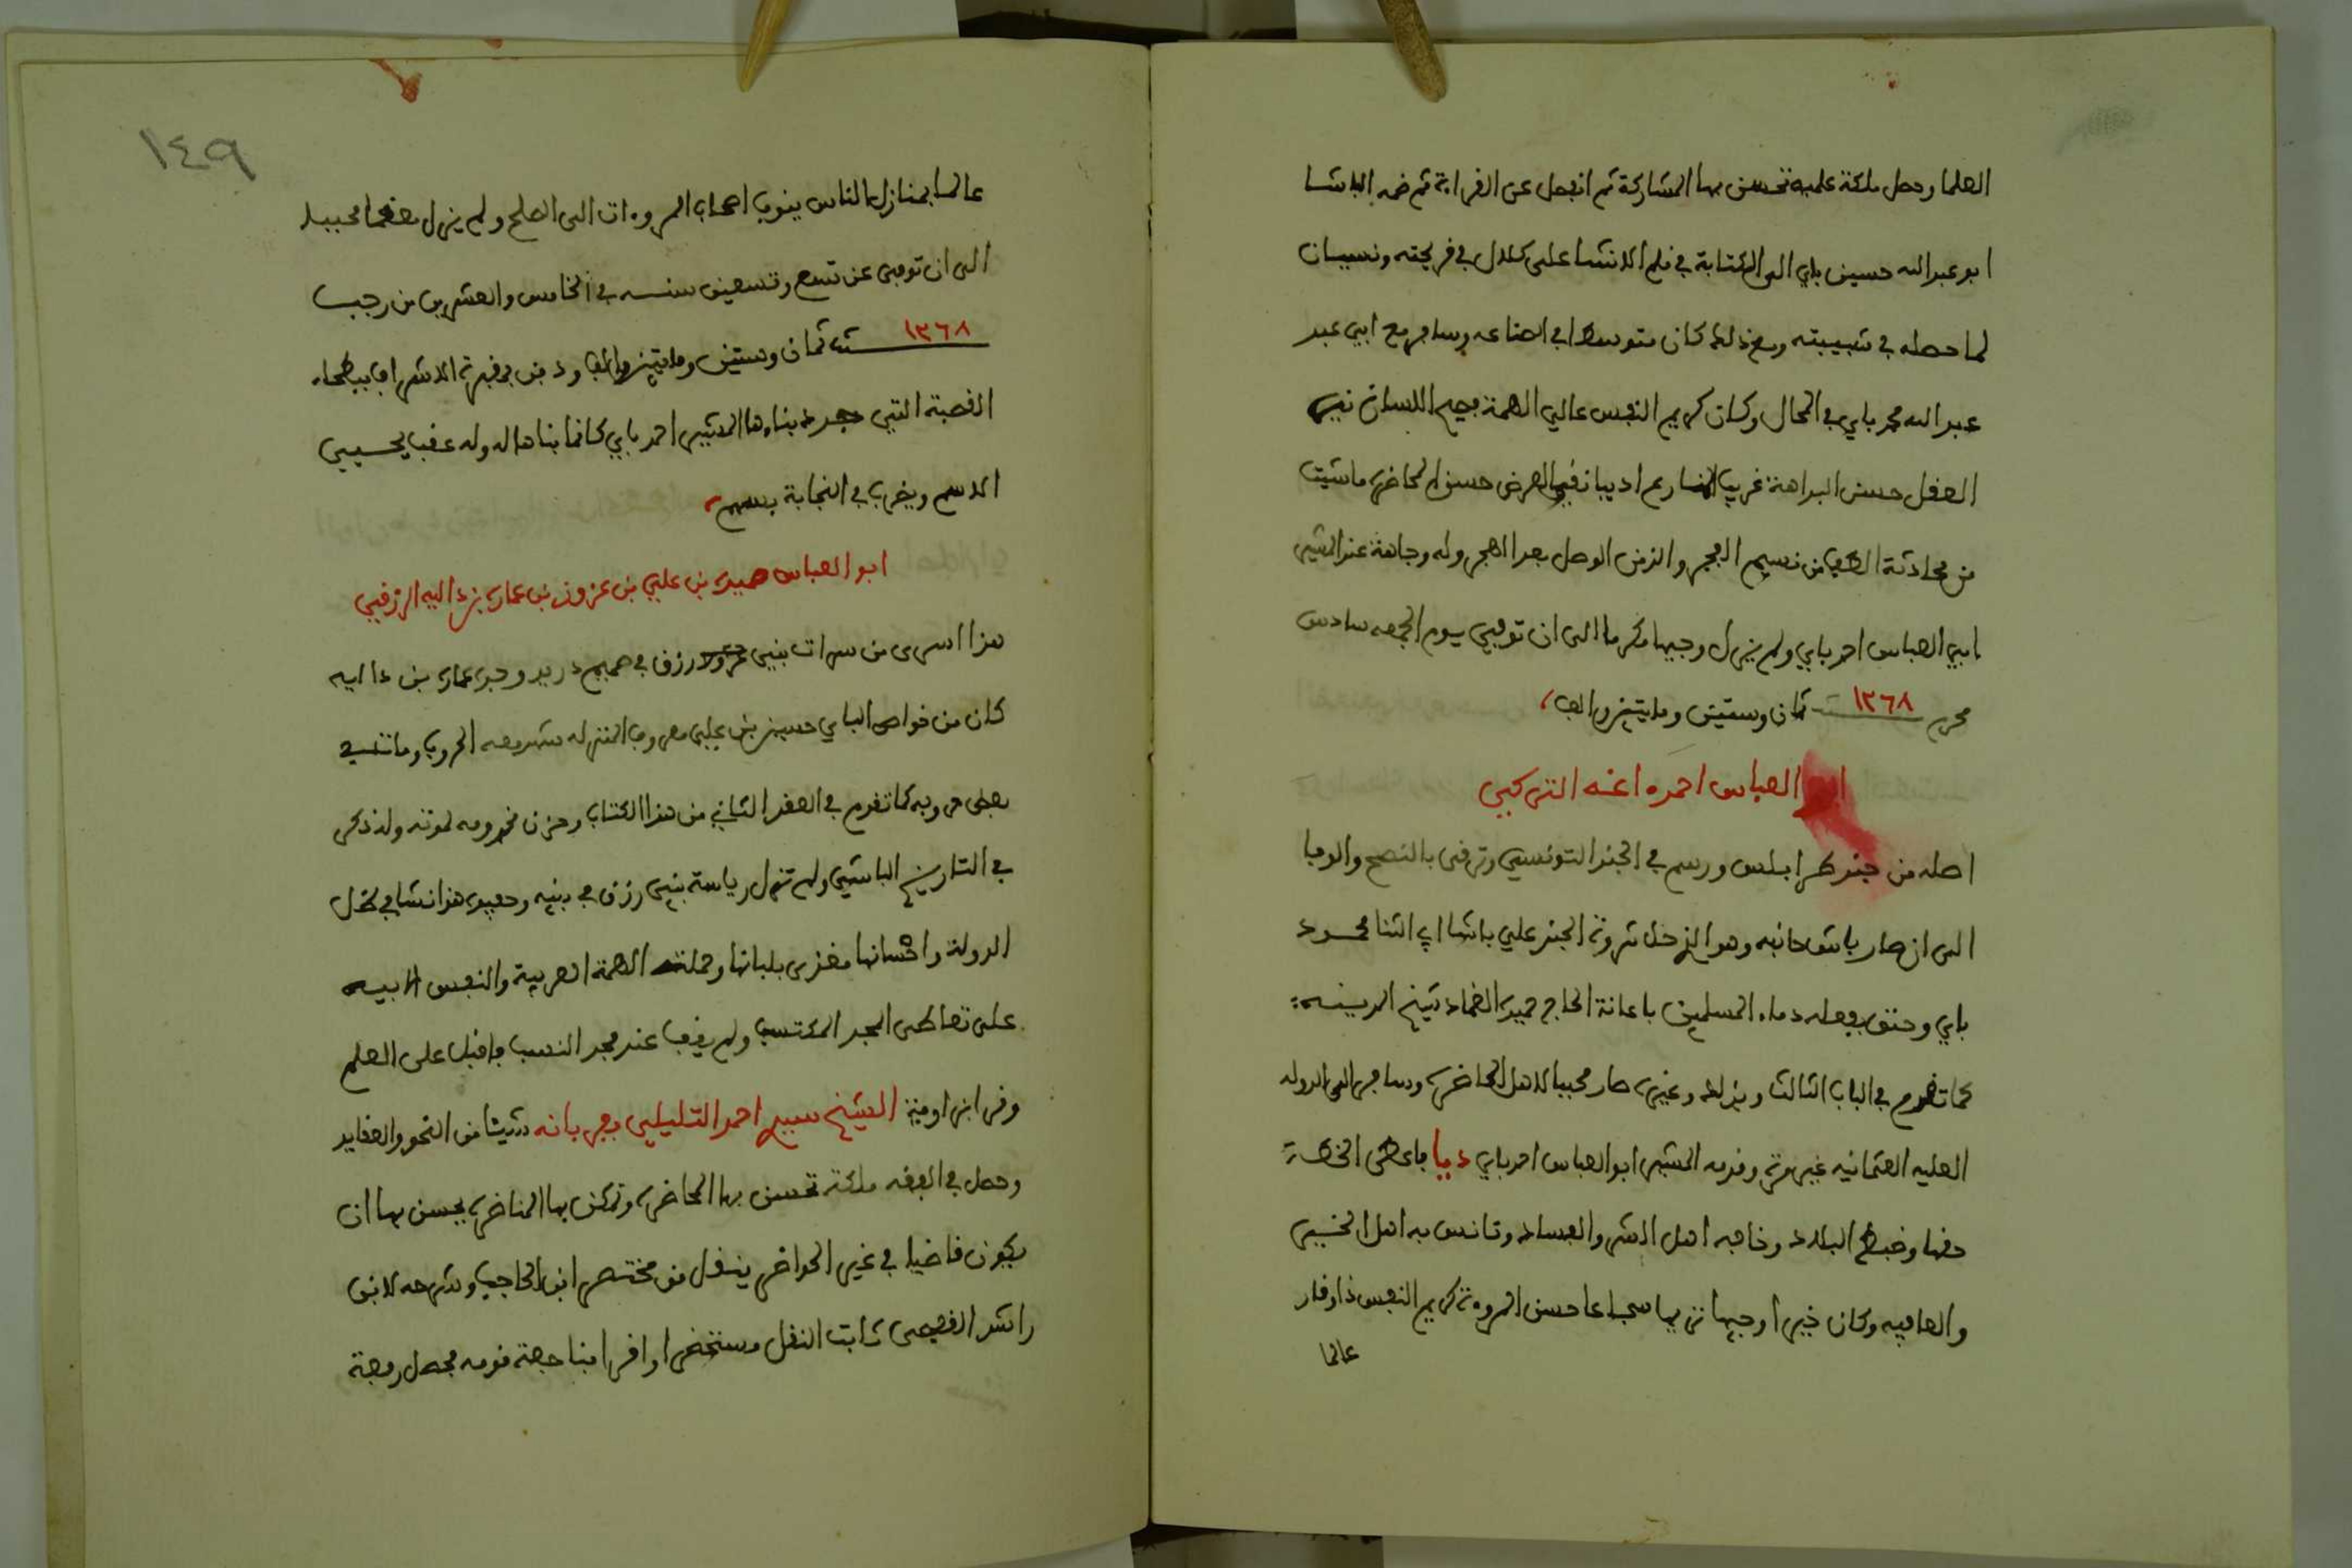 العلما وحصل ملكة علميه تحسن بها المشاركة ثم انفصل عن القراءة ثم ضمه الباشا
ابو عبد الله حسين باي الى الكتابة في قلم الانشا على كلال في قريحته ونسيان
لما حصله في شبيبته ومع ذلك كان متوسطا في الصناعه وسافر مع ابي عبد
عبد الله محمد باي في المحال وكان كريم النفس عالي الهمة فصيح اللسان
العقل حسن البداهة غريب اديبا نقي العرض حسن المحاضرة ما شيت
من محادثة الطف من نسيم الفجر والذ من الوصل بعد الهجر وله وجاهة عند المشير
ابي العباس احمد باي ولم يزل وجيها مكرما الى ان توفي يوم الجمعه سادس
محرم سنة ١٢٦٨ ثمان وستين ومايتين والف
ابو العباس احمده اغه التركي
اصله من جند طرابلس ورسم في الجند التونسي وترقى بالنصح والوفا
الى ان صار باش حانبه وهو الذي ثروة الجند على باشا ابي الثنا محمود
باي وحقن بفعله دماء المسلمين باعانة الحاج حميدة الغماد شيخ المدينه
كما تقدم في الباب الثالث وبذلك وغيره صار محببا لاهل الحاضرة وسافر الى الدوله
العليه العثمانيه غير مرة وقدمه المشير ابو العباس احمد باي دايا فاعطى الخطة
حقها وضبط البلاد وخافه اهل الشر والفساد وتانس به اهل الخير
والعافيه وكان خيرا وجيها نزيها شجاعا حسن المروءة كريم النفس ذا وقار
عالما
١٤٩
عالما بمنازل الناس يندب اصحاب المروءات الى الصلح ولم يزل معظما محببا
الى ان توفي عن تسع وتسعين سنه في الخامس والعشرين من رجب
سنة ١٢٦٨ ثمان وستين ومايتين والف ودفن بمقبرة الاشراف ببطحاء
القصبة التي جدد بناءها المشير احمد باي كانما بناها له وله عقب يحيي
الاسم ويضرب في النجابة بسهم
ابو العباس حميده بن علي بن عزوز بن عمارة بن دالية الرزقي
هذا السري من سراة بني رزق في صميم دريد وجده عمارة بن داليه
كان من خواص الباي حسين بن علي معروف المنزله شهد معه الحروب ومات في
بعض حروبه كما تقدم في العقد الثاني من هذا الكتاب وحزن مخدومه لموته وله ذكر
في التاريخ الباشي ولم تزل رياسة بني رزق في بنيه وحفيده هذا نشا في ظل
الدولة واحسانها مغذى بلبانها وحملته الهمة العربية والنفس الابيه
على تعاطي المجد المكتسب ولم يقف عند مجد النسب فاقبل على العلم
وقرا بن اومية الشيخ سيدي احمد التليلي بفريانه شيئا من النحو والعقايد
وحصل في الفقه ملكة تحسن بها المحاضرة وتمكن بها المناظرة يحسن بها ان
يكون قاضيا في غير الحواضر ينقل من مختصر ابن الحاجب وشرحه لابن
راشد القفصي ثابت النقل مستحضرا وافرا منا حصة قومه محصل رفعة